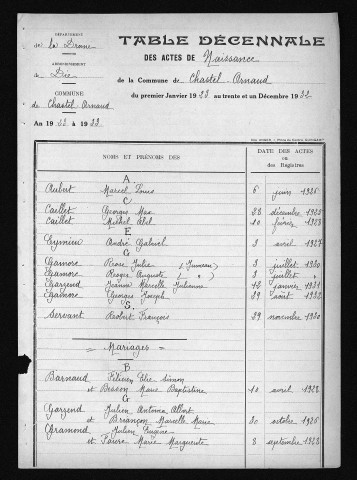 DÉPARTEMENT
de la Drome
ARRONDISSEMENT
de Die
COMMUNE
de Chastel-Arnaud
An 1923 à 1932
TABLE DÉCENNALE
DES ACTES DE Naissance
de la Commune de Chastel-Arnaud
du premier Janvier 1923 au trente et un Décembre 1932
NOMS ET PRÉNOMS DES
DATE DES ACTES
ou
des Registres
A
Aubert Marcel Louis 6 juin 1926
C
Caillet Georges Max 23 décembre 1923
Caillet Michel Abel 10 février 1928
E
Eymieu André Gabriel 3 avril 1927
G
Gamore Rose Julie (Jumeau) 3 juillet 1930
Gamore Roger Auguste ( " ) 3 juillet "
Garzend Jeanne Marcelle Julienne 12 janvier 1931
Gamore Georges Joseph 29 août 1932
S
Servant Robert François 29 novembre 1930
= Mariages =
B
Barnaud Félicien Elie Simon
et Besson Marie Baptistine 10 avril 1928
G
Garzend Julien Antonin Albert
et Briançon Marcelle Marie 30 octobre 1926
Gramond Julien Eugène
et Faure Marie Marguerite 8 septembre 1928